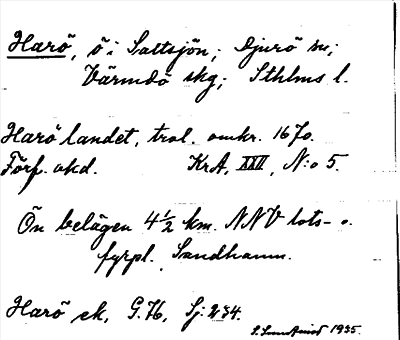 Harö, ö i Saltsjön; Djurö sn;
Värmdö skg; Sthlms l.
Harö landet, trol. omkr. 1670.
Förf. okd. KrA, XXII, N:o 5.
Ön belägen 4½ km. NNV lots- o.
fyrpl. Sandhamn.
Harö ek, G.76, Sj: 234.
1935.